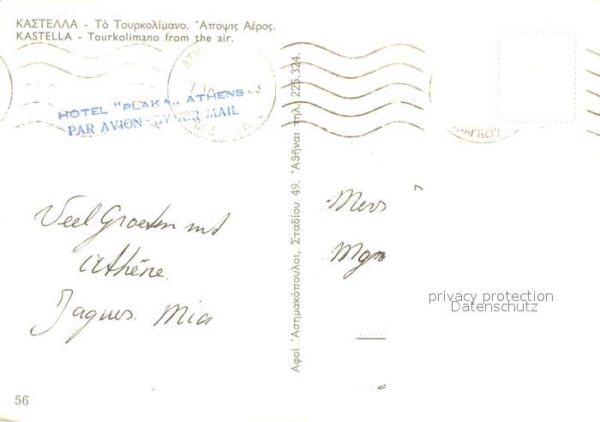 ΚΑΣΤΕΛΛΑ - Τὸ Τουρκολίμανο. Ἄποψις Ἀέρος.
KASTELLA - Tourkolimano from the air.
HOTEL "PLAKA" ATHENS
PAR AVION - BY AIR MAIL
Veel Groeten uit
Athène.
Jaques. Mia
Ἀφοί Ἀστημακόπουλοι, Σταδίου 49. Ἀθῆναι τηλ. 225.324.
Mevr
Mgn
privacy protection
Datenschutz
56